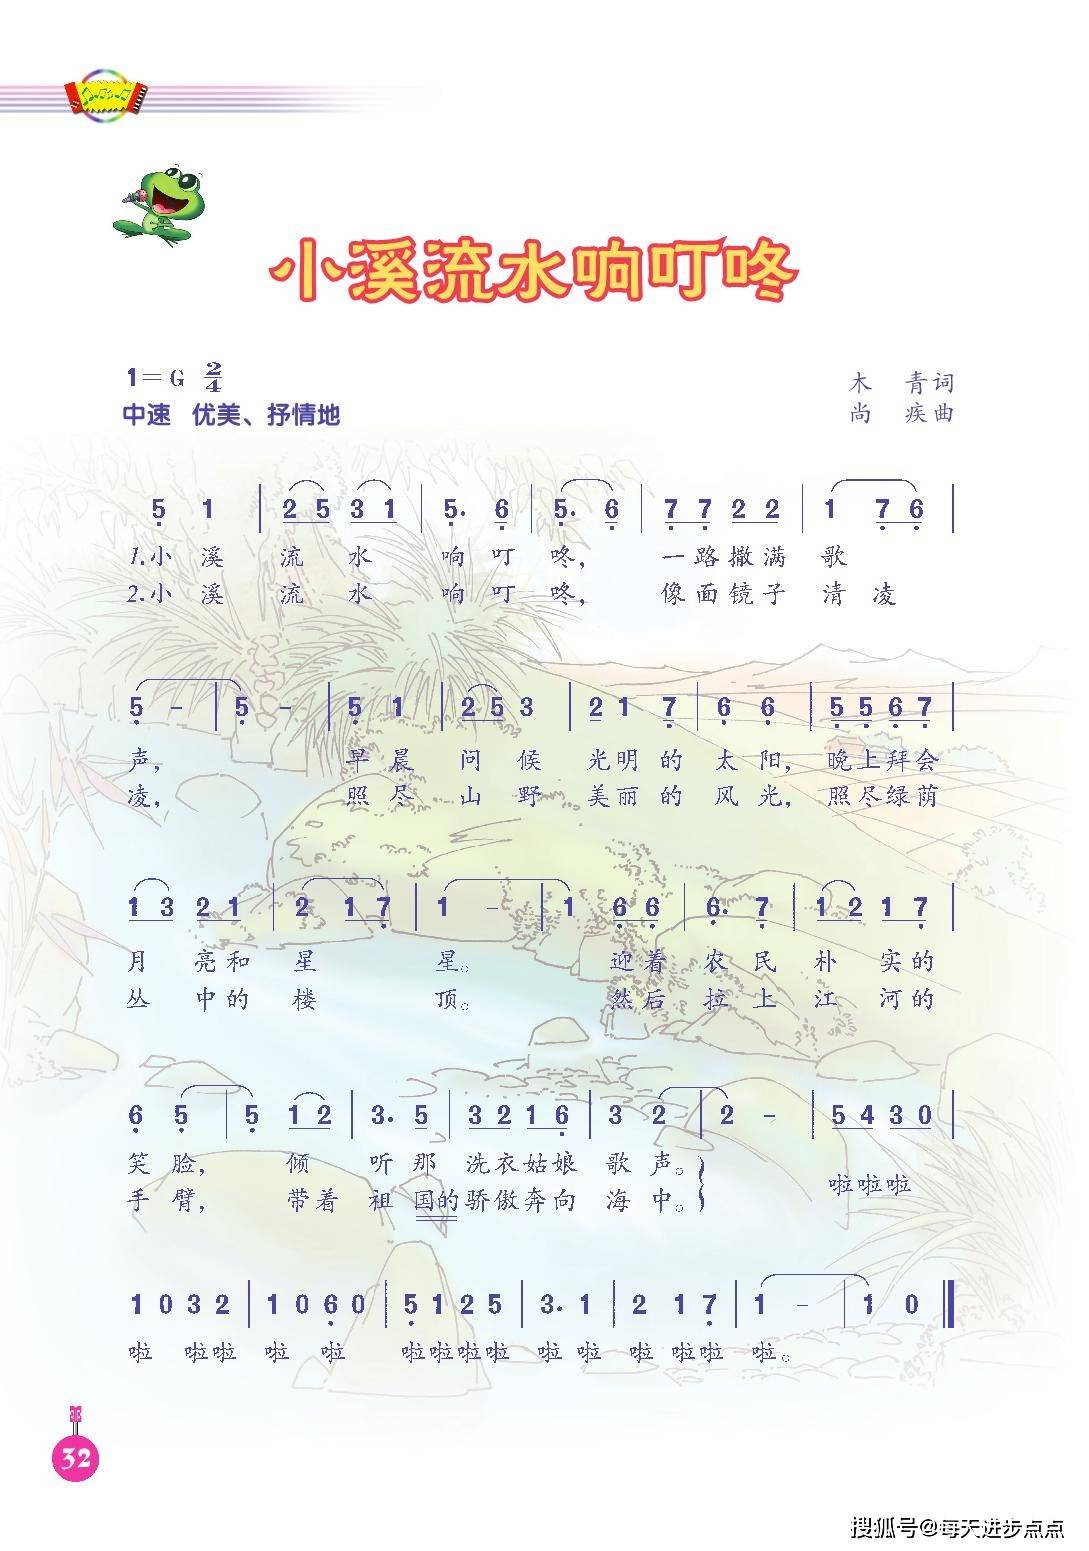 小溪流水响叮咚
1=G 2/4
木 青词
中速 优美、抒情地
尚 疾曲
5 1 | 2 5 3 1 | 5. 6 | 5. 6 | 7 7 2 2 | 1 7 6 |
1.小 溪 流 水 响 叮 咚， 一路撒满 歌
2.小 溪 流 水 响 叮 咚， 像面镜子 清 凌
5 - | 5 - | 5 1 | 2 5 3 | 2 1 7 | 6 6 | 5 5 6 7 |
声， 早 晨 问 候 光明 的 太 阳， 晚上拜会
凌， 照 尽 山 野 美丽 的 风 光， 照尽绿荫
1 3 2 1 | 2 1 7 | 1 - | 1 6 6 | 6. 7 | 1 2 1 7 |
月 亮和 星 星。 迎着 农 民 朴 实的
丛 中的 楼 顶。 然后 拉 上 江 河的
6 5 | 5 1 2 | 3. 5 | 3 2 1 6 | 3 2 | 2 - | 5 4 3 0 |
笑 脸， 倾 听 那 洗衣姑娘 歌 声。
手 臂， 带着 祖 国的 骄傲奔向 海 中。
啦啦啦
1 0 3 2 | 1 0 6 0 | 5 1 2 5 | 3. 1 | 2 1 7 | 1 - | 1 0 ‖
啦 啦啦 啦 啦 啦啦啦啦 啦 啦 啦 啦啦 啦。
32
搜狐号@每天进步点点